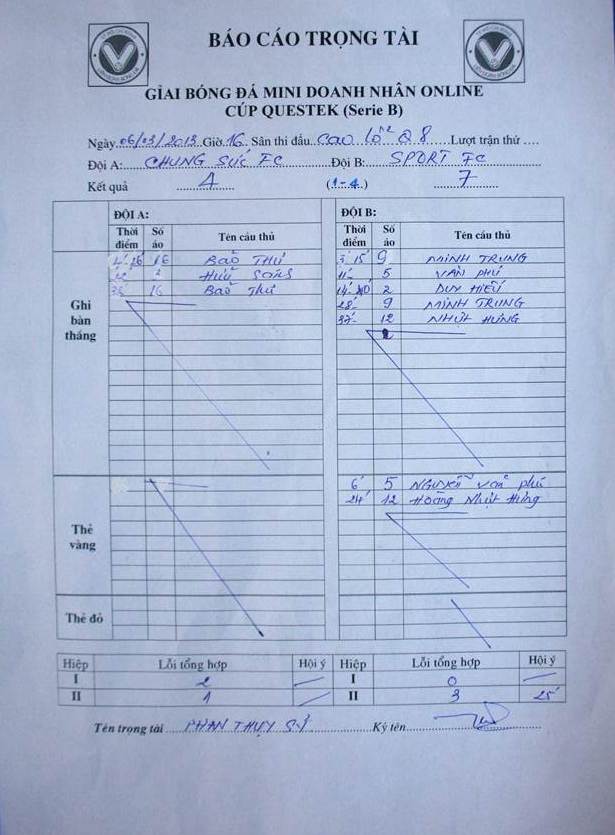 BÁO CÁO TRỌNG TÀI
GIẢI BÓNG ĐÁ MINI DOANH NHÂN ONLINE
CÚP QUESTEK (Serie B)
Ngày 06/03/2013 Giờ 16 Sân thi đấu Cao Lỗ 2 Q8 Lượt trận thứ ....
Đội A: CHUNG SỨC FC Đội B: SPORT FC
Kết quả 4 (1-4) 7
ĐỘI A: ĐỘI B:
Thời điểm Số áo Tên cầu thủ Thời điểm Số áo Tên cầu thủ
Ghi bàn thắng
26' 16 BẢO THƯ 3' 15' 9 MINH TRUNG
2 HỮU 11' 5 VĂN PHÚ
16 BẢO THƯ 14' 40' 2 DUY HIẾU
28' 9 MINH TRUNG
37' 12 NHỰT HƯNG
Thẻ vàng
6' 5 NGUYỄN VĂN PHÚ
24' 12 HOÀNG NHỰT HƯNG
Thẻ đỏ
Hiệp Lỗi tổng hợp Hội ý Hiệp Lỗi tổng hợp Hội ý
I 2 I 0
II 1 II 3 25'
Tên trọng tài PHAN THỤY SỸ Ký tên